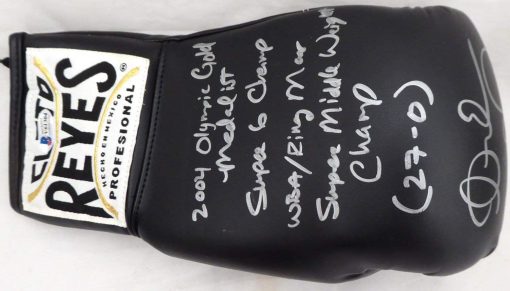 CLETO
REYES®
HECHO EN MEXICO
PROFESIONAL
2004 Olympic Gold
Medalist
Super 6 Champ
WBA/Ring Mag
Super Middle Weight
Champ
(27-0)